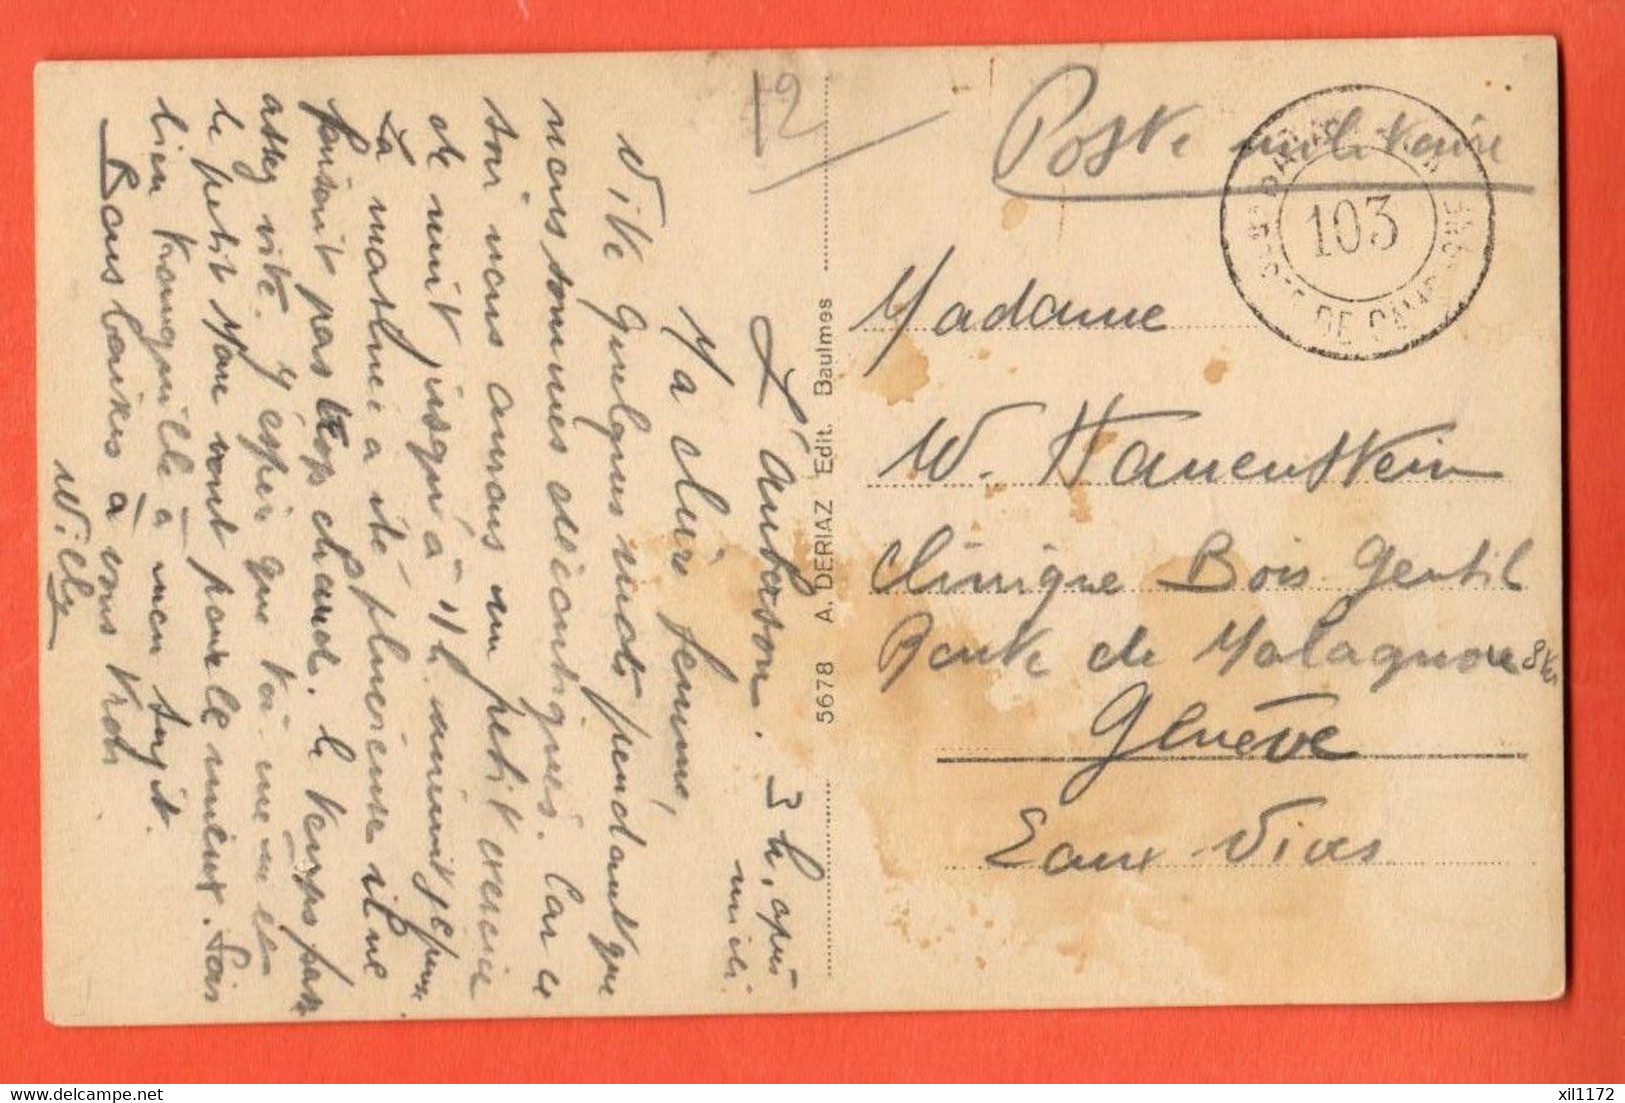 12
L'Auberson. 3 h. après
midi.
Ma chère femme,
Vite quelques mots pendant que
nous sommes décontiqués. Car ce
soir nous aurons un petit exercice
de nuit jusqu'à 11 h. minuit je pense.
La matinée a été pluvieuse il ne
faisait pas trop chaud. Le temps passe
assez vite. J'éspère que toi
le petit vont pour le mieux. Sois
bien tranquille à mon sujet.
Bons baisers à vous trois
Willy
5678 A. DERIAZ Edit. Baulmes
Poste militaire
103
POSTE DE CAMPAGNE
Madame
W. Hauenstein
Clinique Bois Gentil
Route de Malagnou
Genève
Eaux Vives
delcampe.net
xil1172